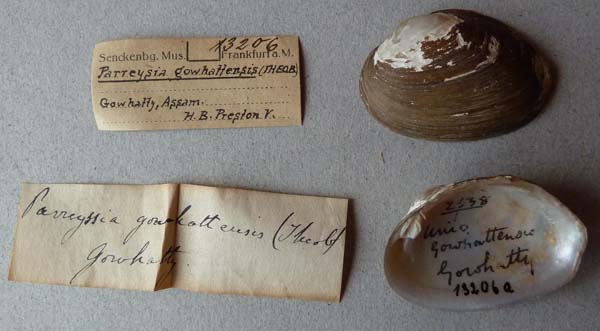 Senckenbg. Mus. 13206 Frankfurt a.M.
Parreysia gowhattensis (THEOB)
Gowhatty, Assam.
H. B. Preston V.
Parreyssia gowhattensis (Theob)
Gowhatty.
Unio
Gowhattensis
Gowhatty
13206a